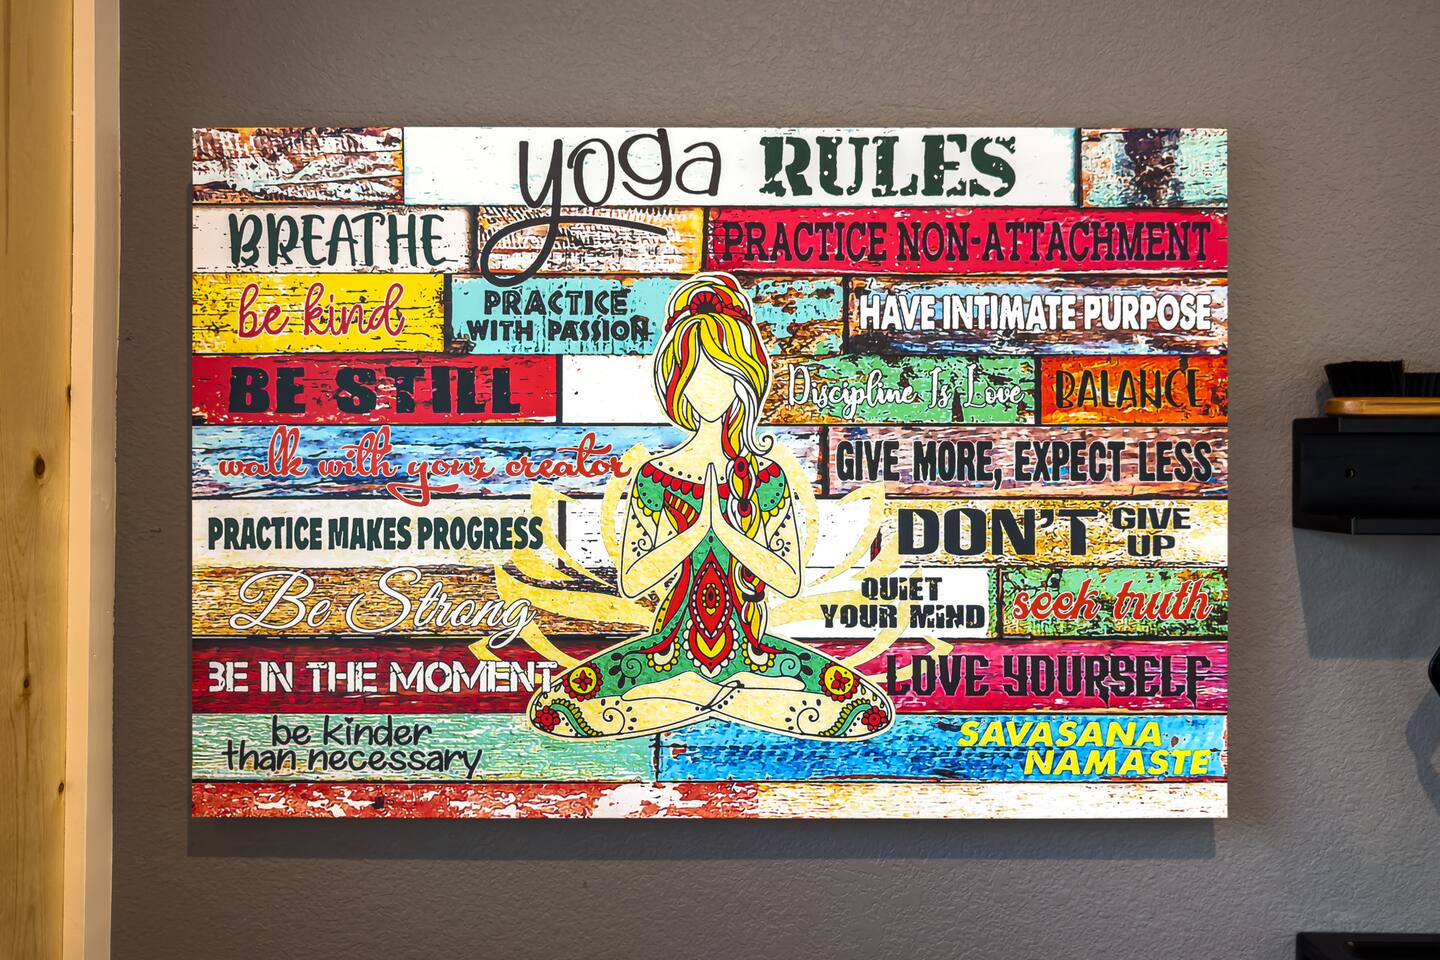 yoga RULES
BREATHE
PRACTICE NON-ATTACHMENT
be kind
PRACTICE
WITH PASSION
HAVE INTIMATE PURPOSE
BE STILL
Discipline Is Love
BALANCE
walk with your creator
GIVE MORE, EXPECT LESS
PRACTICE MAKES PROGRESS
DON'T GIVE
UP
Be Strong
QUIET
YOUR MIND
seek truth
BE IN THE MOMENT
LOVE YOURSELF
be kinder
than necessary
SAVASANA
NAMASTE